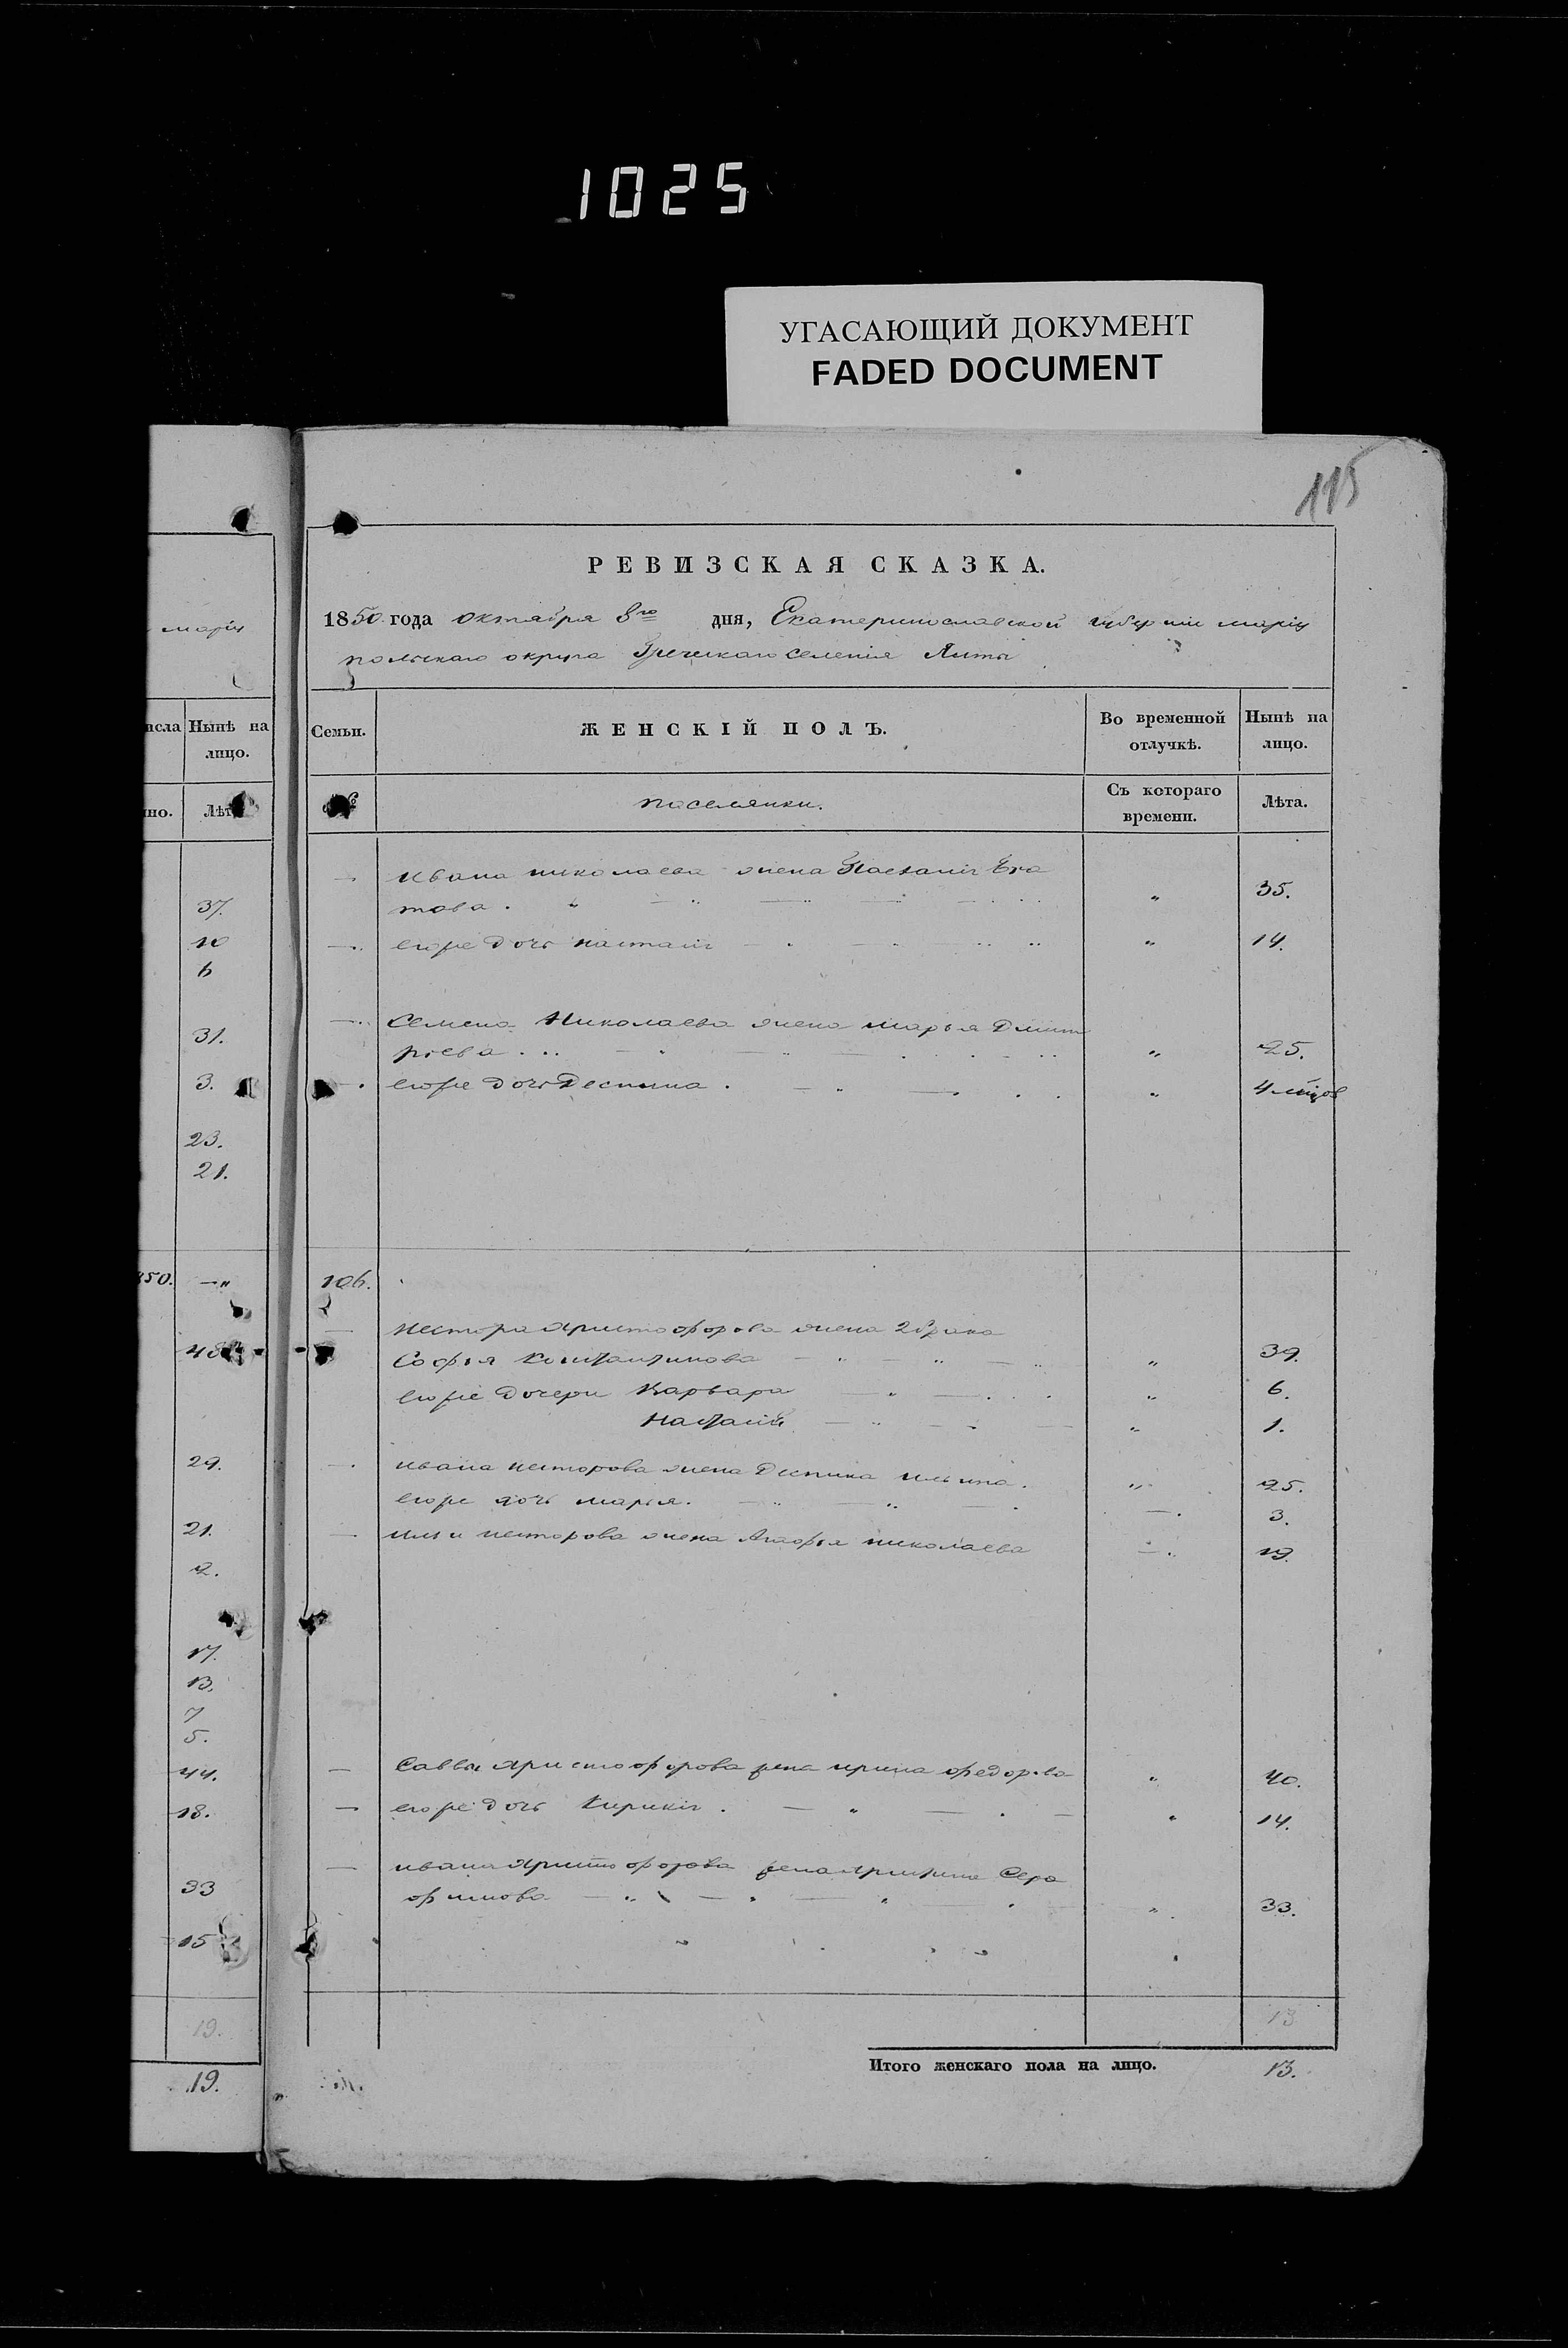 1025
УГАСАЮЩИЙ ДОКУМЕНТ
FADED DOCUMENT
115
РЕВИЗСКАЯ СКАЗКА.
1850 года октября 8го дня, Екатеринославской губерніи маріу
польскаго округа Греческаго селенія Ялты
марiу
исла Нынѣ на лицо.
но. Лѣта
37.
10
6
31.
3.
23.
21.
850. —"
48
29.
21.
2.
17.
13.
7
5.
44.
18.
33
15
19.
19.
Семьи. ЖЕНСКІЙ ПОЛЪ. Во временной отлучкѣ. Нынѣ на лицо.
№ поселянки. Съ котораго времени. Лѣта.
Ивана николаева жена
това. " 35.
егоже дочь настасія " 14.
Семена Николаева жена марья Дмит
ріева " 25.
егоже дочь Деспина. " 4 мцов
106.
нестора христофорова жена 2 брака
Софья Константинова " 39.
егоже дочери Варвара " 6.
Настасія " 1.
ивана нестерова жена Деспина ильина. " 25.
егоже дочь марья. 3.
ильи несторова жена Агафья николаева 19.
Саввы христофорова жена ирина федорова " 40.
егоже дочь Кирикія. " 14.
ивана христофорова жена Сера
фимова " 33.
13
Итого женскаго пола на лицо. 13.